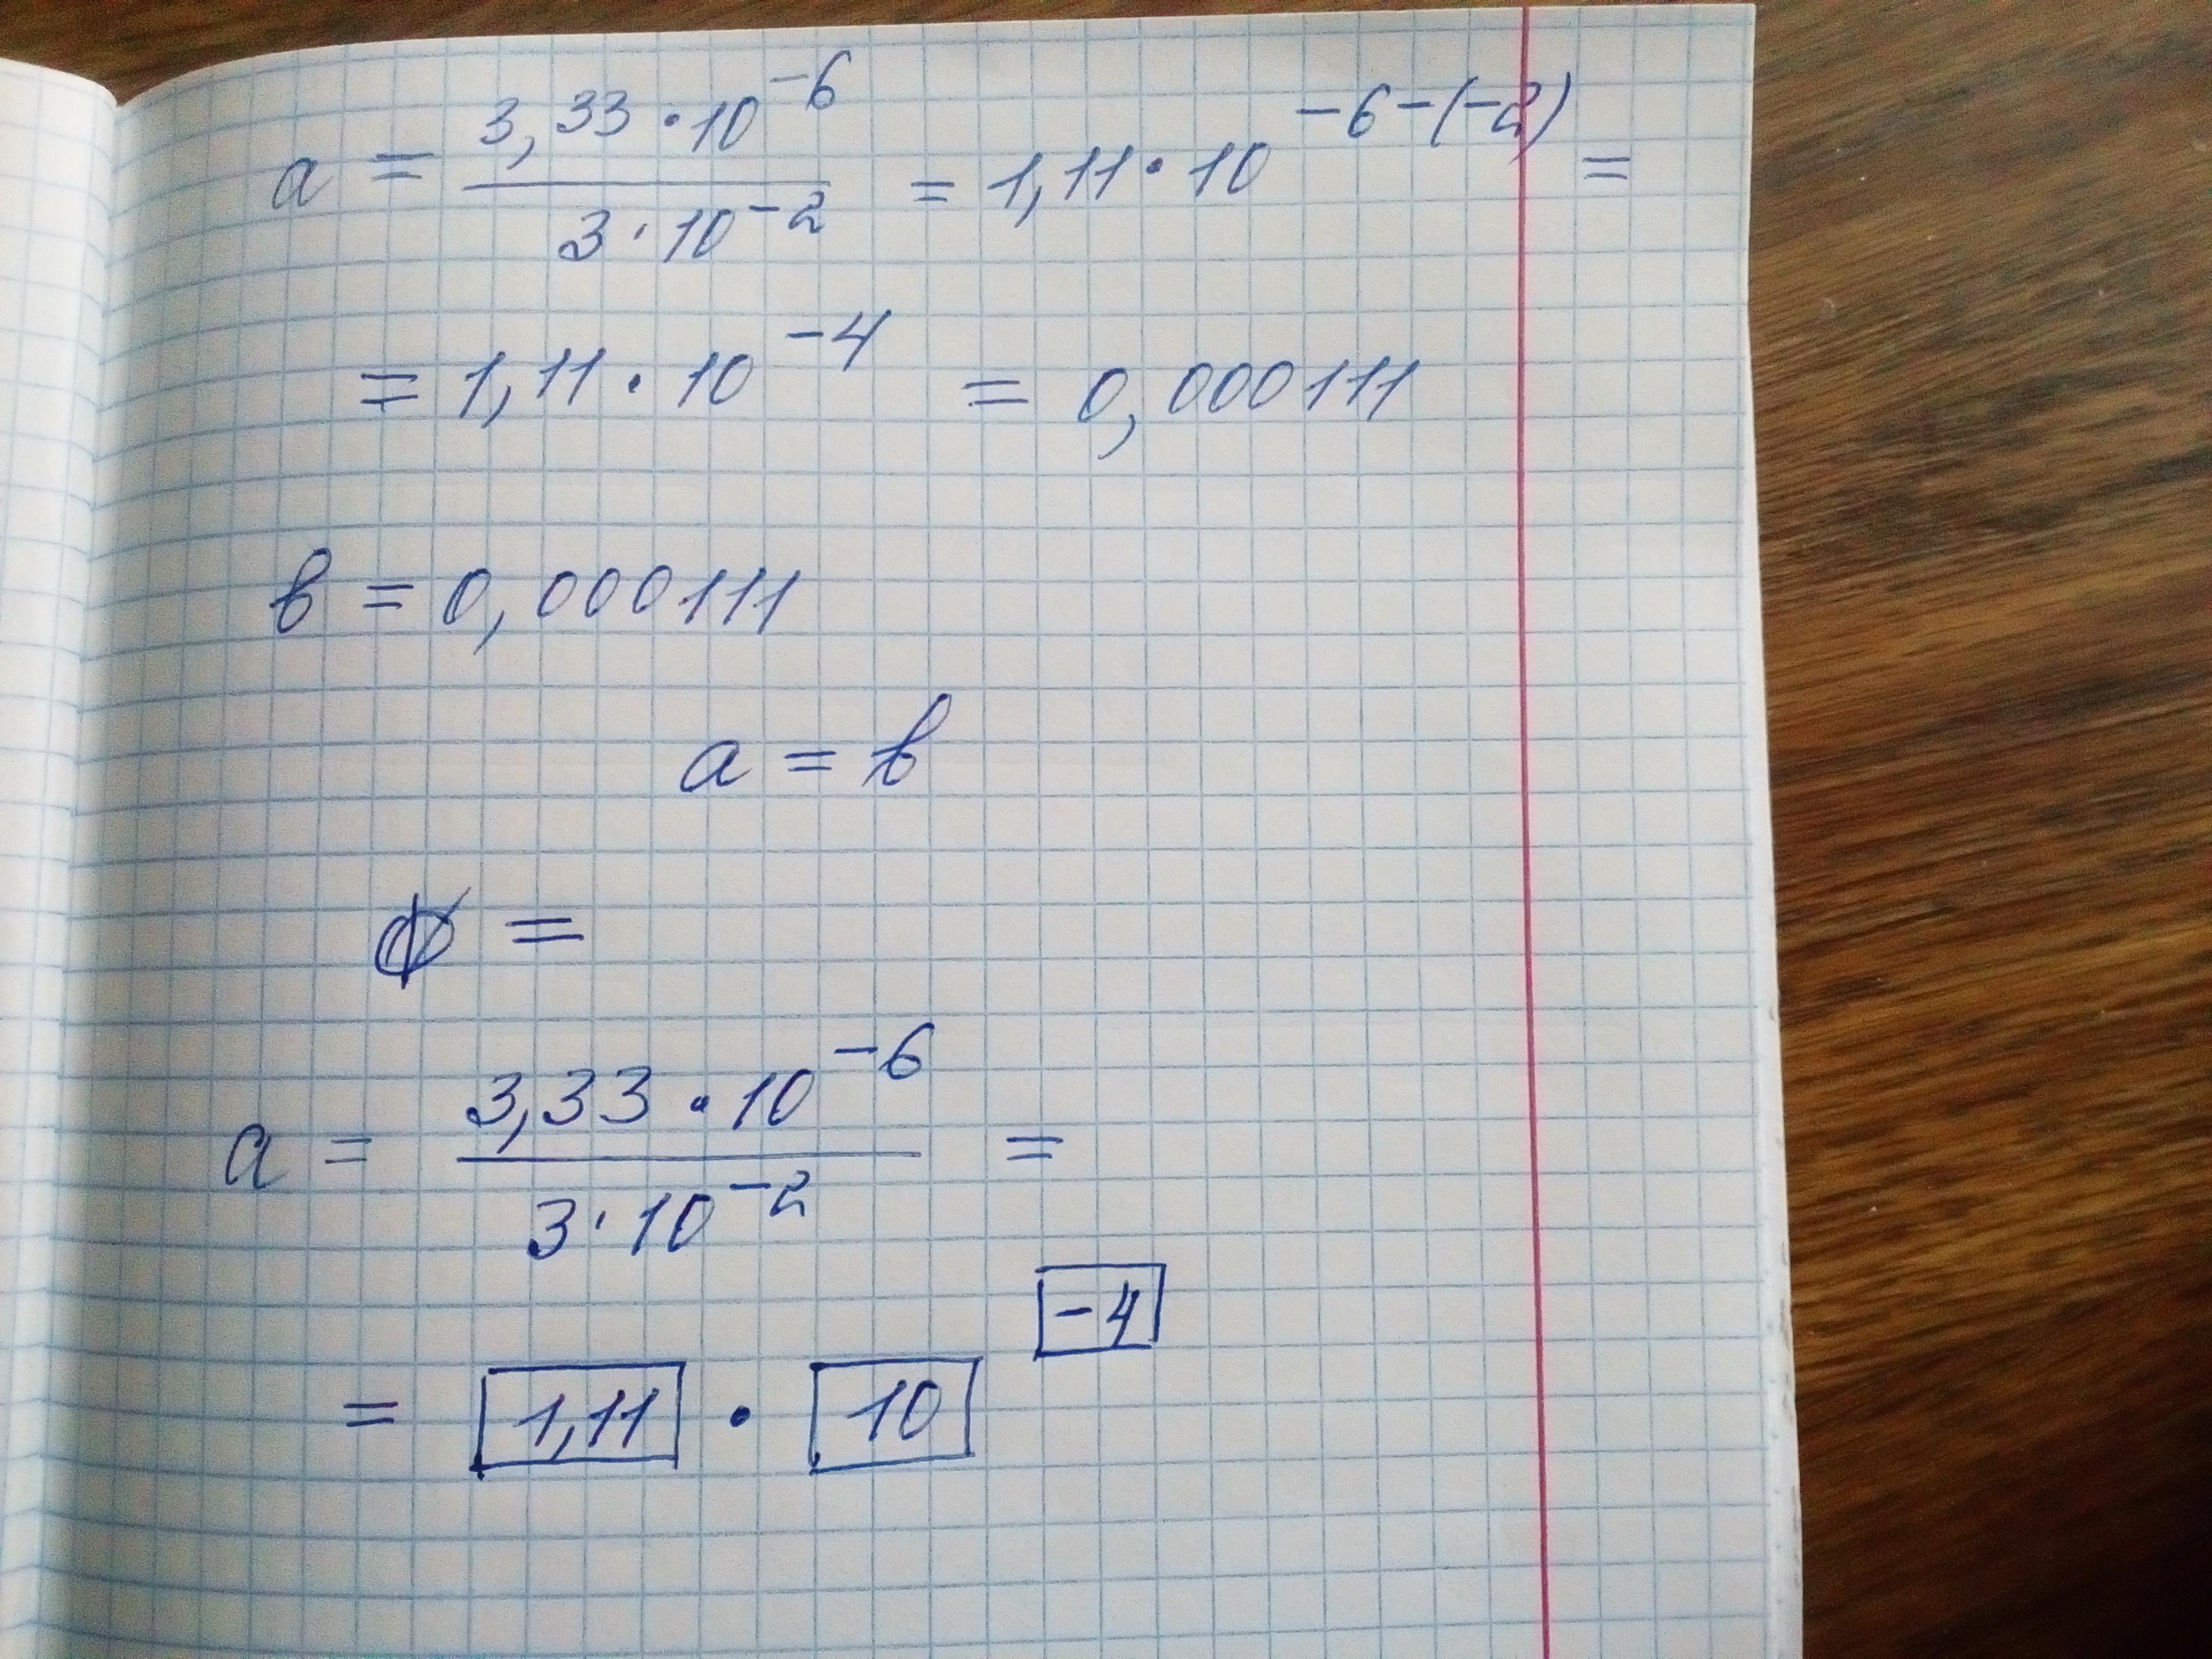 a = 3,33 · 10^-6 / 3 · 10^-2 = 1,11 · 10^-6-(-2) =
= 1,11 · 10^-4 = 0,000111
в = 0,000111
a = в
=
a = 3,33 · 10^-6 / 3 · 10^-2 =
= 1,11 · 10^-4